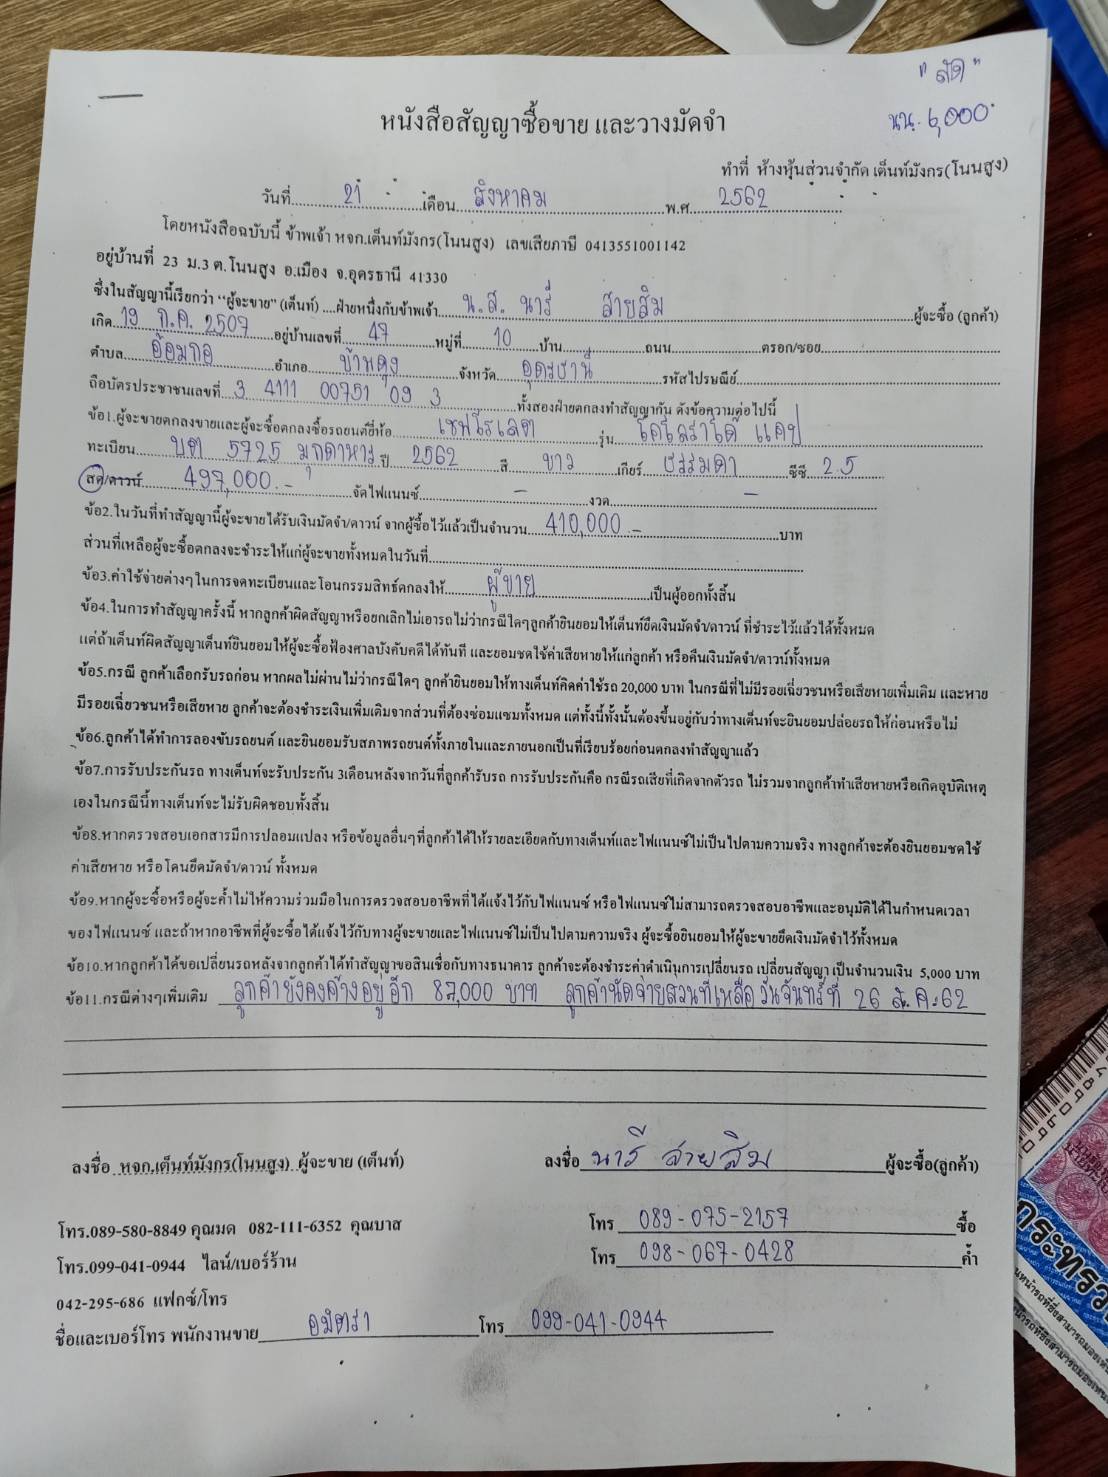 " สด "
นน. 6,000
หนังสือสัญญาซื้อขาย และวางมัดจำ
ทำที่ ห้างหุ้นส่วนจำกัด เต็นท์มังกร(โนนสูง)
วันที่ 21 เดือน สิงหาคม พ.ศ. 2562
โดยหนังสือฉบับนี้ ข้าพเจ้า หจก.เต็นท์มังกร(โนนสูง) เลขเสียภาษี 0413551001142
อยู่บ้านที่ 23 ม.3 ต.โนนสูง อ.เมือง จ.อุดรธานี 41330
ซึ่งในสัญญานี้เรียกว่า "ผู้จะขาย" (เต็นท์) ....ฝ่ายหนึ่งกับข้าพเจ้า น.ส. นารี สายสิม ผู้จะซื้อ (ลูกค้า)
เกิด 19 ก.ค. 2507 อยู่บ้านเลขที่ 47 หมู่ที่ 10 บ้าน ถนน ตรอก/ซอย
ตำบล อ้อมกอ อำเภอ บ้านดุง จังหวัด อุดรธานี รหัสไปรษณีย์
ถือบัตรประชาชนเลขที่ 3 4111 00751 09 3 ทั้งสองฝ่ายตกลงทำสัญญากัน ดังข้อความต่อไปนี้
ข้อ1.ผู้จะขายตกลงขายและผู้จะซื้อตกลงซื้อรถยนต์ยี่ห้อ เชฟโรเลต รุ่น โคโลราโด้ แคป
ทะเบียน บต 5725 มุกดาหาร ปี 2562 สี ขาว เกียร์ ธรรมดา ซีซี 2.5
สด/ดาวน์ 497,000.- จัดไฟแนนซ์ - งวด -
ข้อ2.ในวันที่ทำสัญญานี้ผู้จะขายได้รับเงินมัดจำ/ดาวน์ จากผู้ซื้อไว้แล้วเป็นจำนวน 410,000.- บาท
ส่วนที่เหลือผู้จะซื้อตกลงจะชำระให้แก่ผู้จะขายทั้งหมดในวันที่
ข้อ3.ค่าใช้จ่ายต่างๆในการจดทะเบียนและโอนกรรมสิทธ์ตกลงให้ ผู้ขาย เป็นผู้ออกทั้งสิ้น
ข้อ4.ในการทำสัญญาครั้งนี้ หากลูกค้าผิดสัญญาหรือยกเลิกไม่เอารถไม่ว่ากรณีใดๆลูกค้ายินยอมให้เต็นท์ยึดเงินมัดจำ/ดาวน์ ที่ชำระไว้แล้วได้ทั้งหมด
แต่ถ้าเต็นท์ผิดสัญญาเต็นท์ยินยอมให้ผู้จะซื้อฟ้องศาลบังคับคดีได้ทันที และยอมชดใช้ค่าเสียหายให้แก่ลูกค้า หรือคืนเงินมัดจำ/ดาวน์ทั้งหมด
ข้อ5.กรณี ลูกค้าเลือกรับรถก่อน หากผลไม่ผ่านไม่ว่ากรณีใดๆ ลูกค้ายินยอมให้ทางเต็นท์คิดค่าใช้รถ 20,000 บาท ในกรณีที่ไม่มีรอยเฉี่ยวชนหรือเสียหายเพิ่มเติม และหาย
มีรอยเฉี่ยวชนหรือเสียหาย ลูกค้าจะต้องชำระเงินเพิ่มเติมจากส่วนที่ต้องซ่อมแซมทั้งหมด แต่ทั้งนี้ทั้งนั้นต้องขึ้นอยู่กับว่าทางเต็นท์จะยินยอมปล่อยรถให้ก่อนหรือไม่
ข้อ6.ลูกค้าได้ทำการลองขับรถยนต์ และยินยอมรับสภาพรถยนต์ทั้งภายในและภายนอกเป็นที่เรียบร้อยก่อนตกลงทำสัญญาแล้ว
ข้อ7.การรับประกันรถ ทางเต็นท์จะรับประกัน 3เดือนหลังจากวันที่ลูกค้ารับรถ การรับประกันคือ กรณีรถเสียที่เกิดจากตัวรถ ไม่รวมจากลูกค้าทำเสียหายหรือเกิดอุบัติเหตุ
เองในกรณีนี้ทางเต็นท์จะไม่รับผิดชอบทั้งสิ้น
ข้อ8.หากตรวจสอบเอกสารมีการปลอมแปลง หรือข้อมูลอื่นๆที่ลูกค้าได้ให้รายละเอียดกับทางเต็นท์และไฟแนนซ์ไม่เป็นไปตามความจริง ทางลูกค้าจะต้องยินยอมชดใช้
ค่าเสียหาย หรือโดนยึดมัดจำ/ดาวน์ ทั้งหมด
ข้อ9.หากผู้จะซื้อหรือผู้จะค้ำไม่ให้ความร่วมมือในการตรวจสอบอาชีพที่ได้แจ้งไว้กับไฟแนนซ์ หรือไฟแนนซ์ไม่สามารถตรวจสอบอาชีพและอนุมัติได้ในกำหนดเวลา
ของไฟแนนซ์ และถ้าหากอาชีพที่ผู้จะซื้อได้แจ้งไว้กับทางผู้จะขายและไฟแนนซ์ไม่เป็นไปตามความจริง ผู้จะซื้อยินยอมให้ผู้จะขายยึดเงินมัดจำไว้ทั้งหมด
ข้อ10.หากลูกค้าได้ขอเปลี่ยนรถหลังจากลูกค้าได้ทำสัญญาขอสินเชื่อกับทางธนาคาร ลูกค้าจะต้องชำระค่าดำเนินการเปลี่ยนรถ เปลี่ยนสัญญา เป็นจำนวนเงิน 5,000 บาท
ข้อ11.กรณีต่างๆเพิ่มเติม ลูกค้ายังคงค้างอยู่อีก 87,000 บาท ลูกค้านัดจ่ายส่วนที่เหลือ วันจันทร์ที่ 26 ส.ค. 62
ลงชื่อ หจก.เต็นท์มังกร(โนนสูง) ผู้จะขาย (เต็นท์) ลงชื่อ นารี สายสิม ผู้จะซื้อ(ลูกค้า)
โทร.089-580-8849 คุณมด 082-111-6352 คุณบาส โทร 089-075-2157 ซื้อ
โทร.099-041-0944 ไลน์/เบอร์ร้าน โทร 098-067-0428 ค้ำ
042-295-686 แฟกซ์/โทร
ชื่อและเบอร์โทร พนักงานขาย อมิตรา โทร 099-041-0944
กระทรว